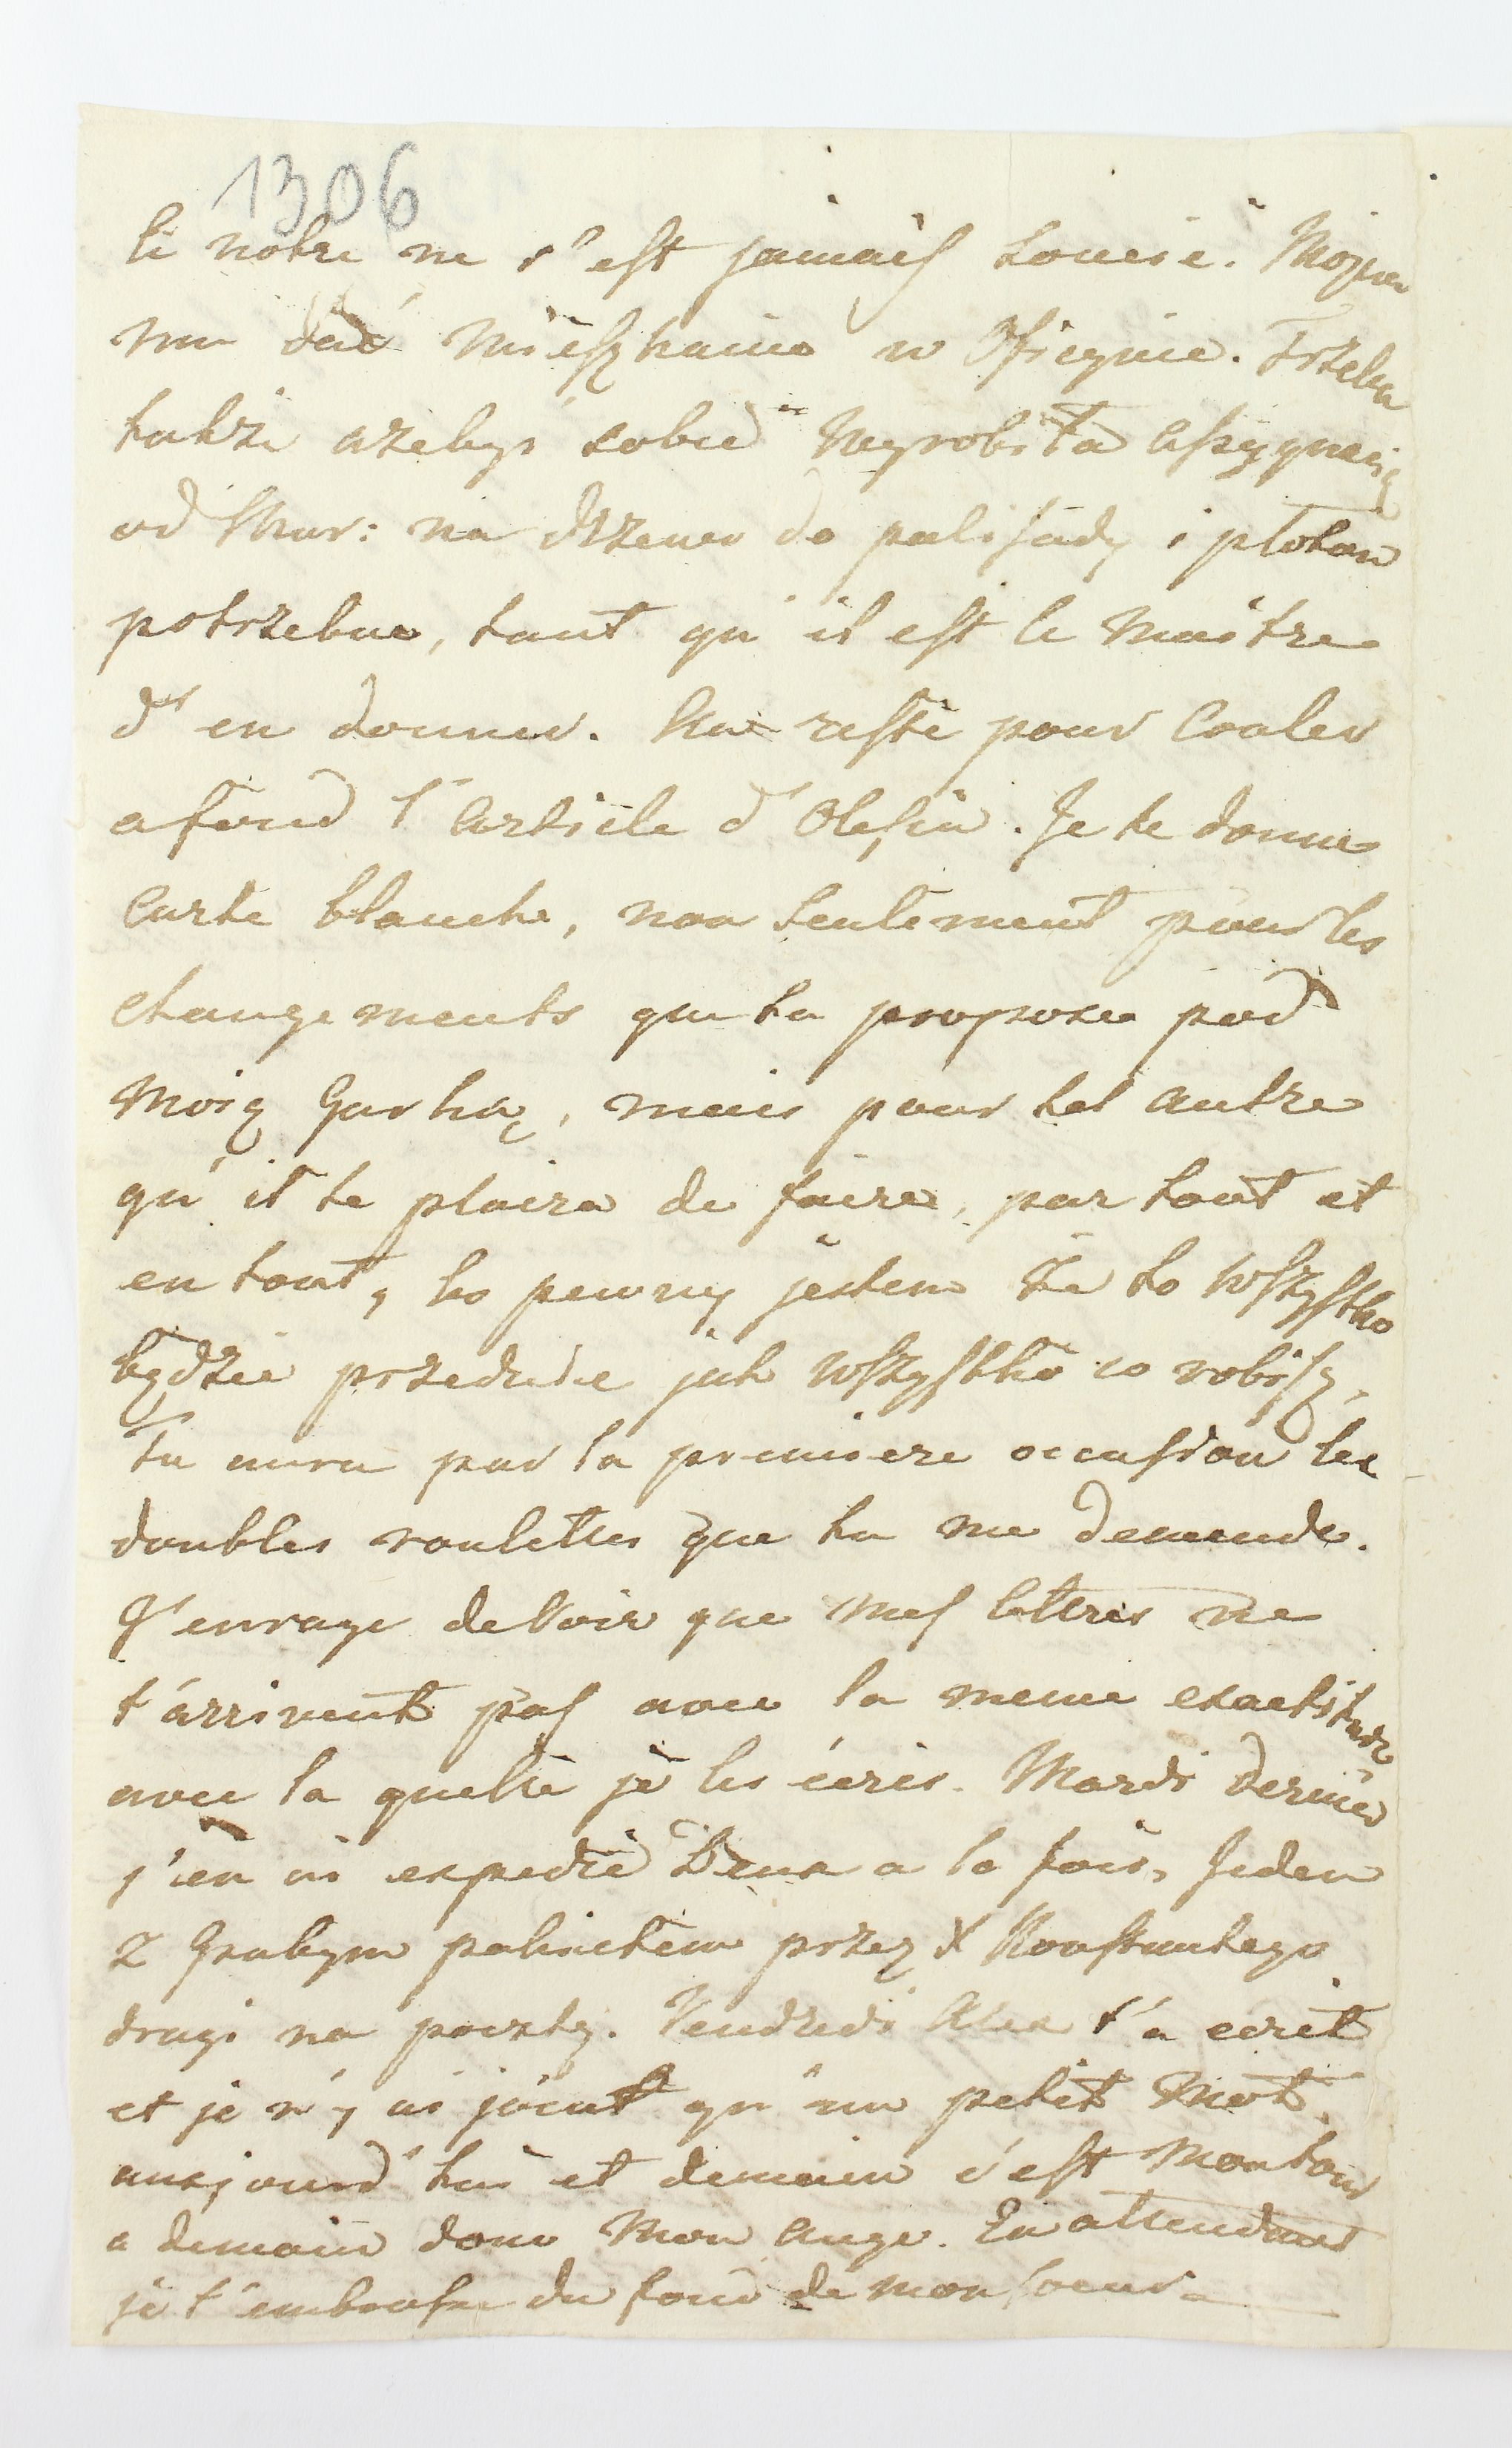 1306
le notre ne s'est jamaisМожна
mu dać mieszkanie w Oficynie. Trzeba
także ażebyś sobie wyrobiła assygnacią
od Mur: na drzewo do palisady i płotow
potrzebne, tant qu'il est le maitre
d'en donner. reste pour Couler
a fond l'article d'Olesin. Je te donne
Carte blanche, non seulement pour les
changements que tu propose pod
moią Gorką, mais pour tel autre
qu'il te plaira de faire, par tout et
en tout, bo pewny jestem że to wszystko
będzie przedudne jak wszystko co robisz.
Tu aura par la premiere occasion les
doubles roulettes que tu me demande.
J'enrage de voir que mes lettres ne
t'arrivent pas avec la meme exactitude
avec la quelle je les écris. Mardi dernier
j'en ai expedié Deux a la fois, Jeden
z Grabym pakietem przez X Konstantego
drugi na poczty. Vendredi Alex t'a ecrit
et je n'y ai joint qu'un petit mot.
aujourd'hui et demain c'est mon tour
a demain donc Mon Ange. En attendant
je t'embrasse du fond de mon coeur